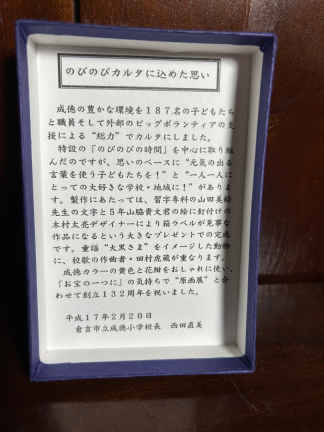 のびのびカルタに込めた思い
成徳の豊かな環境を187名の子どもたち
と職員そして外部のビッグボランティアの支
援による“総力”でカルタにしました。
特設の「のびのびの時間」を中心に取り組
んだのですが、思いのベースに“元気の出る
言葉を使う子どもたちを!”と“一人一人に
とっての大好きな学校・地域に!”がありま
す。製作にあたっては、習字専科の山田美
先生の文字と5年山脇貴文君の絵に釘付けの
木村太亮デザイナーにより箱ラベルが見事な
作品になるという大きなプレゼントでの完成
です。童謡“大黒さま”をイメージした動物
に、校歌の作曲者・田村虎蔵が重なります。
成徳カラーの黄色と花紺をおしゃれに使い、
「お宝の一つに」の気持ちで“原画展”と合
わせて創立132周年を祝いました。
平成17年2月20日
倉吉市立成徳小学校長 西田直美